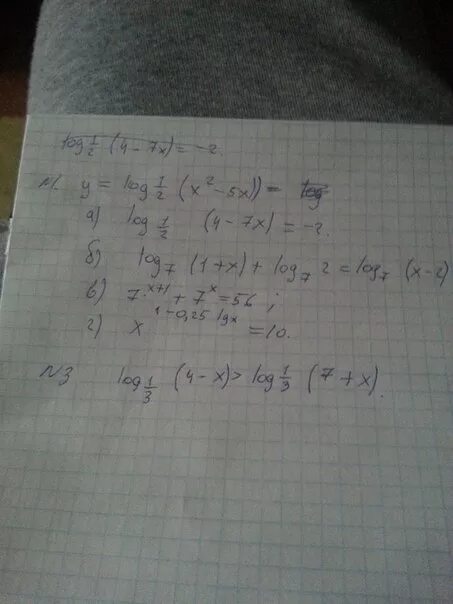 log 1/2 (4 - 7x) = -2
N1 y = log 1/2 (x² - 5x)) = log
а) log 1/2 (4 - 7x) = -2.
б) log₇ (1+x) + log₇ 2 = log₇ (x-2)
в) 7^(x+1) + 7^x = 56;
г) x^(1-0,25 lgx) = 10.
N3 log 1/3 (4-x) > log 1/3 (7+x).